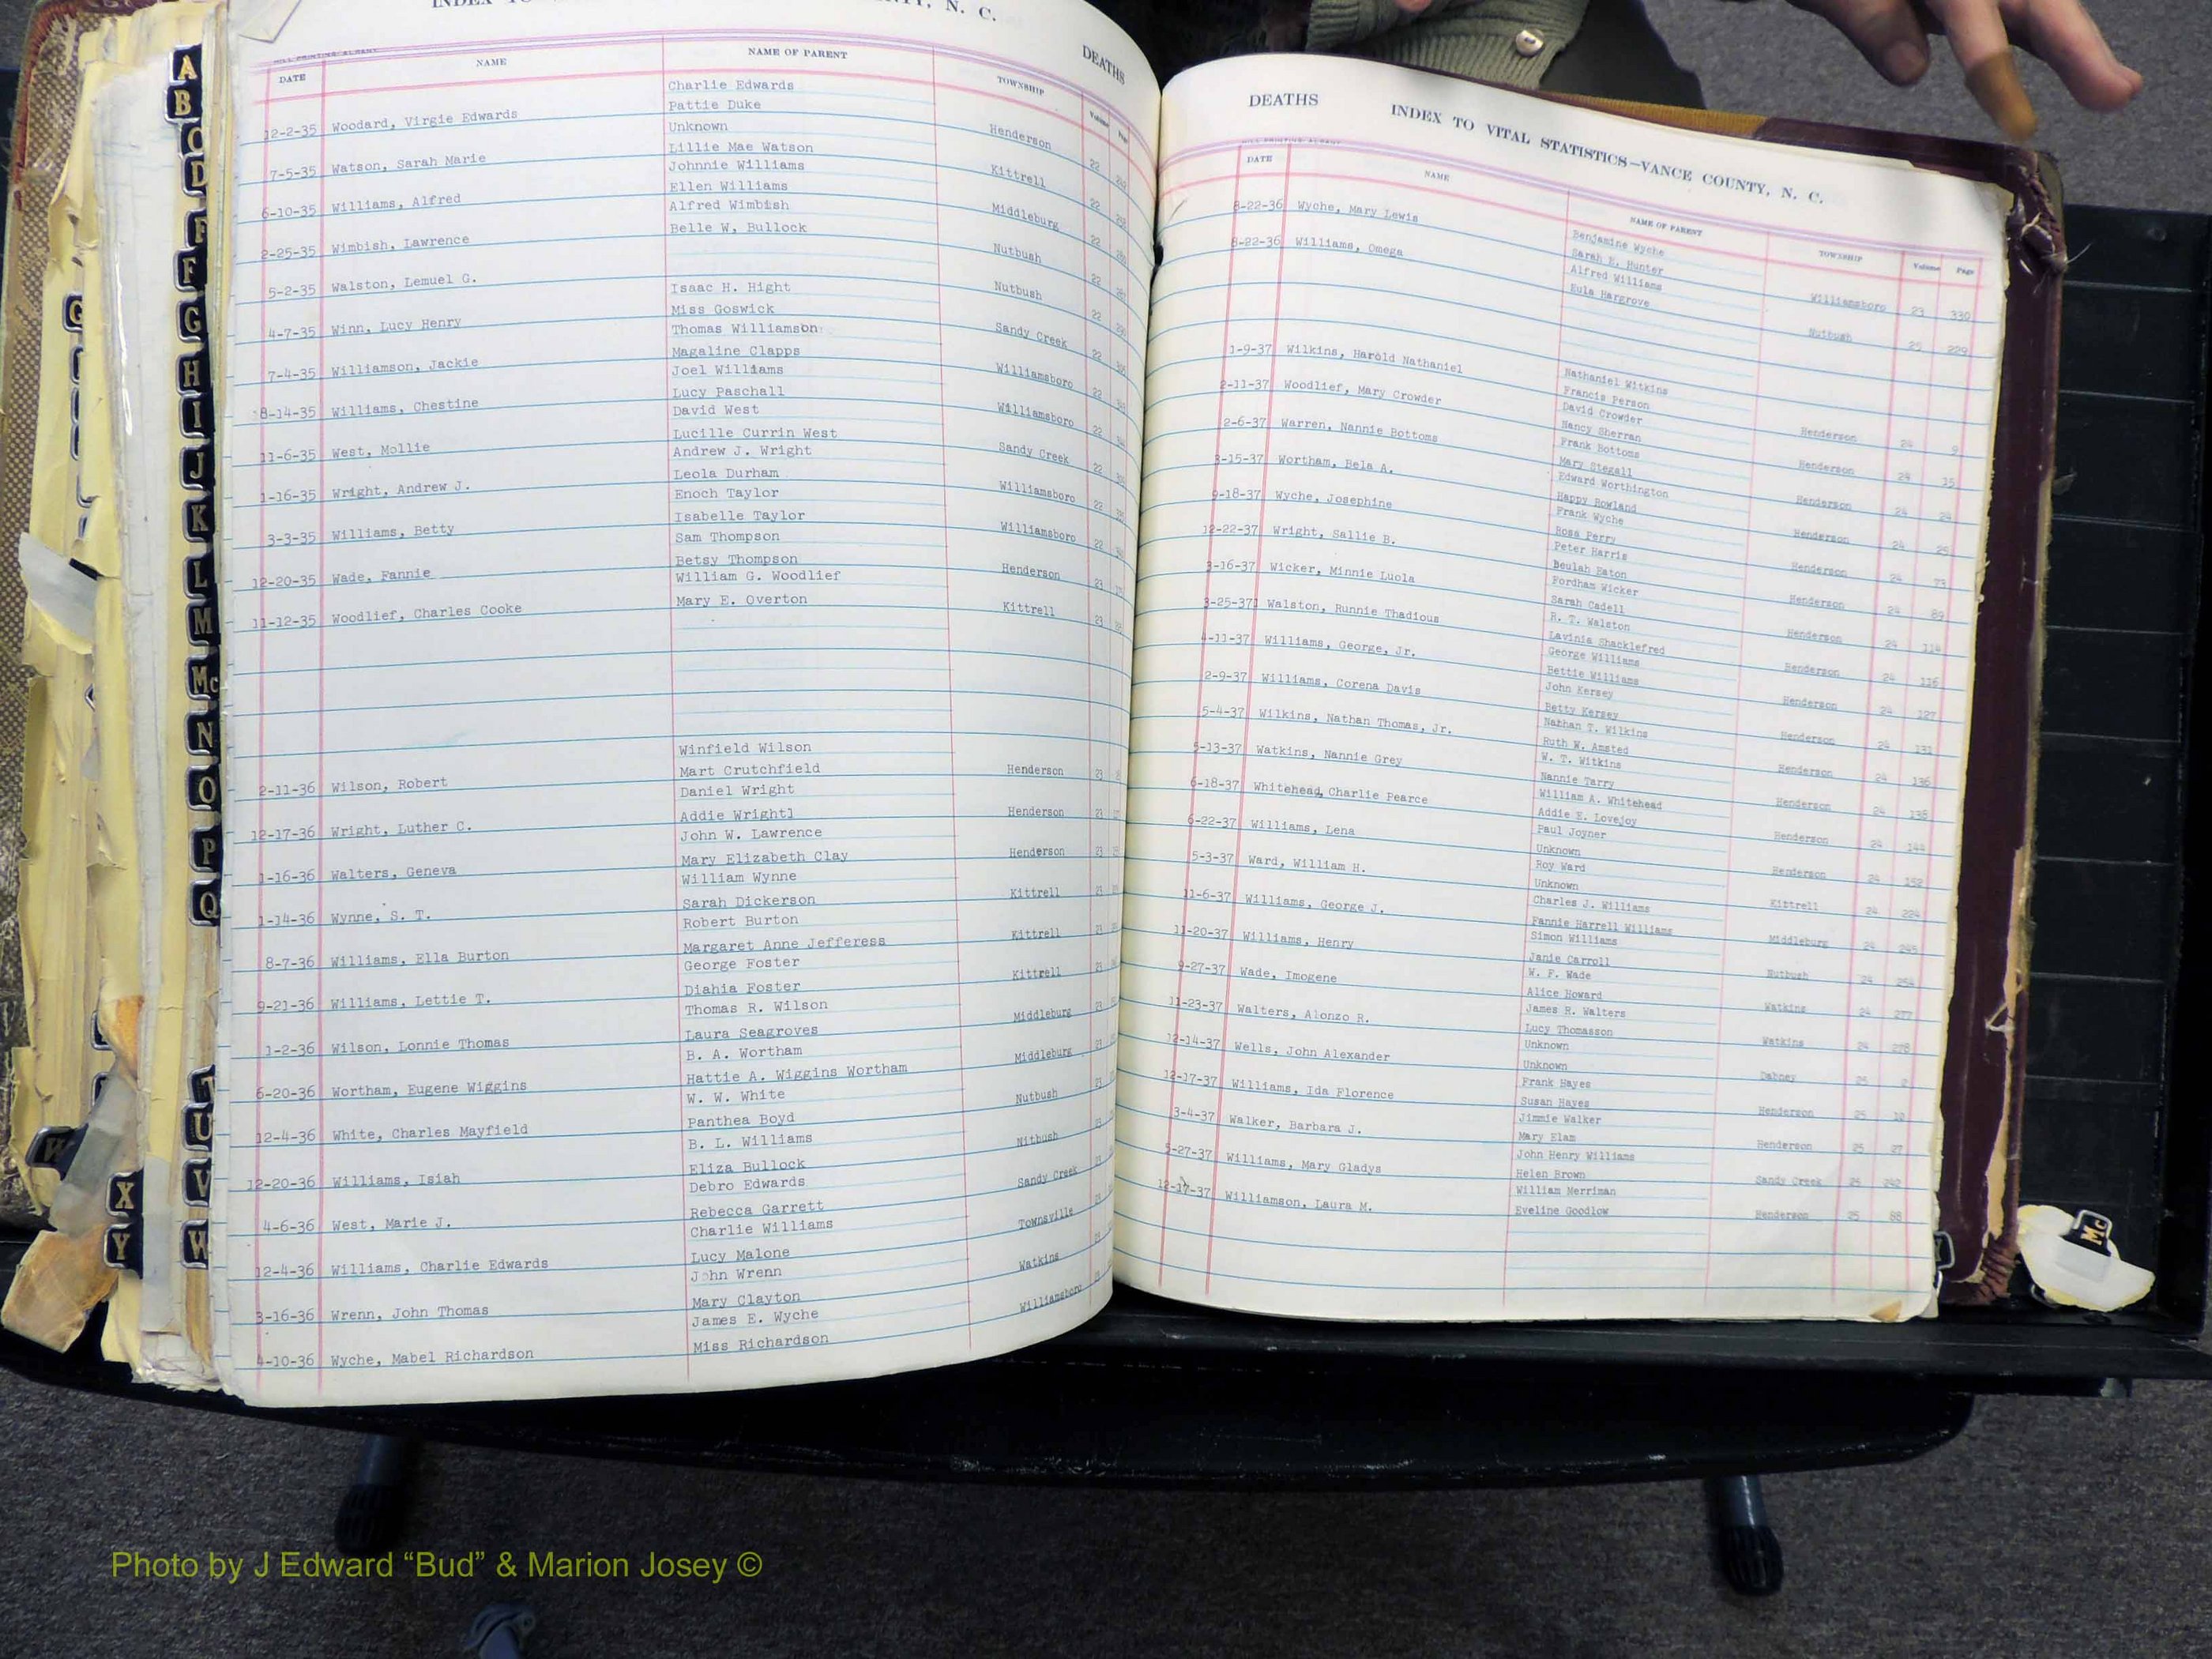 N. C.
DEATHS
DATE NAME NAME OF PARENT TOWNSHIP Volume Page
Charlie Edwards
12-2-35 Woodard, Virgie Edwards Pattie Duke Henderson 22
Unknown
7-5-35 Watson, Sarah Marie Lillie Mae Watson Kittrell 22
Johnnie Williams
6-10-35 Williams, Alfred Ellen Williams Middleburg 22
Alfred Wimbish
2-25-35 Wimbish, Lawrence Belle W, Bullock Nutbush 22
5-2-35 Walston, Lemuel G. Nutbush 22
Isaac H. Hight
4-7-35 Winn, Lucy Henry Miss Goswick Sandy Creek 22
Thomas Williamson
7-4-35 Williamson, Jackie Magaline Clapps Williamsboro 22
Joel Williams
8-14-35 Williams, Chestine Lucy Paschall Williamsboro 22
David West
11-6-35 West, Mollie Lucille Currin West Sandy Creek 22
Andrew J. Wright
1-16-35 Wright, Andrew J. Leola Durham Williamsboro 22
Enoch Taylor
3-3-35 Williams, Betty Isabelle Taylor Williamsboro 22
Sam Thompson
12-20-35 Wade, Fannie Betsy Thompson Henderson 23
William G. Woodlief
11-12-35 Woodlief, Charles Cooke Mary E. Overton Kittrell 23
Winfield Wilson
2-11-36 Wilson, Robert Mart Crutchfield Henderson 23
Daniel Wright
12-17-36 Wright, Luther C. Addie Wrightl Henderson 23
John W. Lawrence
1-16-36 Walters, Geneva Mary Elizabeth Clay Henderson 23
William Wynne
1-14-36 Wynne, S. T. Sarah Dickerson Kittrell 23
Robert Burton
8-7-36 Williams, Ella Burton Margaret Anne Jefferess Kittrell 23
George Foster
9-21-36 Williams, Lettie T. Diahia Foster Kittrell 23
Thomas R. Wilson
1-2-36 Wilson, Lonnie Thomas Laura Seagroves Middleburg 23
B. A. Wortham
6-20-36 Wortham, Eugene Wiggins Hattie A. Wiggins Wortham Middleburg 23
W. W. White
12-4-36 White, Charles Mayfield Panthea Boyd Nutbush 23
B. L. Williams
12-20-36 Williams, Isiah Eliza Bullock Nitbush 23
Debro Edwards
4-6-36 West, Marie J. Rebecca Garrett Sandy Creek 23
Charlie Williams
12-4-36 Williams, Charlie Edwards Lucy Malone Townsville 23
John Wrenn
3-16-36 Wrenn, John Thomas Mary Clayton Watkins 23
James E. Wyche
4-10-36 Wyche, Mabel Richardson Miss Richardson Williamsboro 23
DEATHS INDEX TO VITAL STATISTICS—VANCE COUNTY, N. C.
DATE NAME NAME OF PARENT TOWNSHIP Volume Page
8-22-36 Wyche, Mary Lewis Benjamine Wyche
Sarah E. Hunter Williamsboro 23 330
8-22-36 Williams, Omega Alfred Williams
Eula Hargrove Nutbush 25 229
1-9-37 Wilkins, Harold Nathaniel Nathaniel Witkins
Francis Person Henderson 24 9
2-11-37 Woodlief, Mary Crowder David Crowder
Nancy Sherran Henderson 24 15
2-6-37 Warren, Nannie Bottoms Frank Bottoms
Mary Stegall Henderson 24 24
3-15-37 Wortham, Bela A. Edward Worthington
Happy Rowland Henderson 24 25
9-18-37 Wyche, Josephine Frank Wyche
Rosa Perry Henderson 24 73
12-22-37 Wright, Sallie B. Peter Harris
Beulah Eaton Henderson 24 89
3-16-37 Wicker, Minnie Luola Fordham Wicker
Sarah Cadell Henderson 24 114
3-25-37 Walston, Runnie Thadious R. T. Walston
Lavinia Shacklefred Henderson 24 116
4-11-37 Williams, George, Jr. George Williams
Bettie Williams Henderson 24 127
2-9-37 Williams, Corena Davis John Kersey
Betty Kersey Henderson 24 131
5-4-37 Wilkins, Nathan Thomas, Jr. Nathan T. Wilkins
Ruth W. Amsted Henderson 24 136
5-13-37 Watkins, Nannie Grey W. T. Witkins
Nannie Tarry Henderson 24 138
6-18-37 Whitehead, Charlie Pearce William A. Whitehead
Addie E. Lovejoy Henderson 24 144
6-22-37 Williams, Lena Paul Joyner
Unknown Henderson 24 152
5-3-37 Ward, William H. Roy Ward
Unknown Kittrell 24 224
11-6-37 Williams, George J. Charles J. Williams
Fannie Harrell Williams Middleburg 24 245
11-20-37 Williams, Henry Simon Williams
Janie Carroll Nutbush 24 254
9-27-37 Wade, Imogene W. F. Wade
Alice Howard Watkins 24 277
11-23-37 Walters, Alonzo R. James R. Walters
Lucy Thomasson Watkins 24 278
12-14-37 Wells, John Alexander Unknown
Unknown Dabney 25 2
12-17-37 Williams, Ida Florence Frank Hayes
Susan Hayes Henderson 25 10
3-4-37 Walker, Barbara J. Jimmie Walker
Mary Elam Henderson 25 27
5-27-37 Williams, Mary Gladys John Henry Williams
Helen Brown Sandy Creek 24 242
12-17-37 Williamson, Laura M. William Merriman
Eveline Goodlow Henderson 25 88
A
B
C
D
F
G
G
H
I
J
K
L
M
Mc
N
O
P
Q
T
U
V
W
W
X
Y
Mc
Photo by J Edward “Bud” & Marion Josey ©